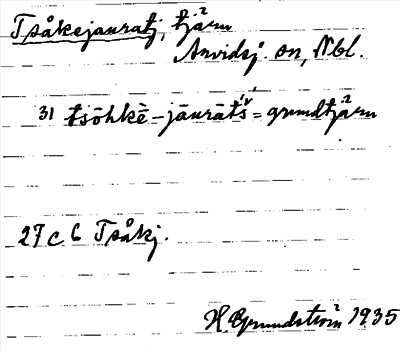 Tsåkejauratj, tjärn
Arvidsj. sn, Nbl.
31 tsōhkē-jāurāt's = grundtjärn
27 c 6 Tsåkj.
H. Grundström 1935